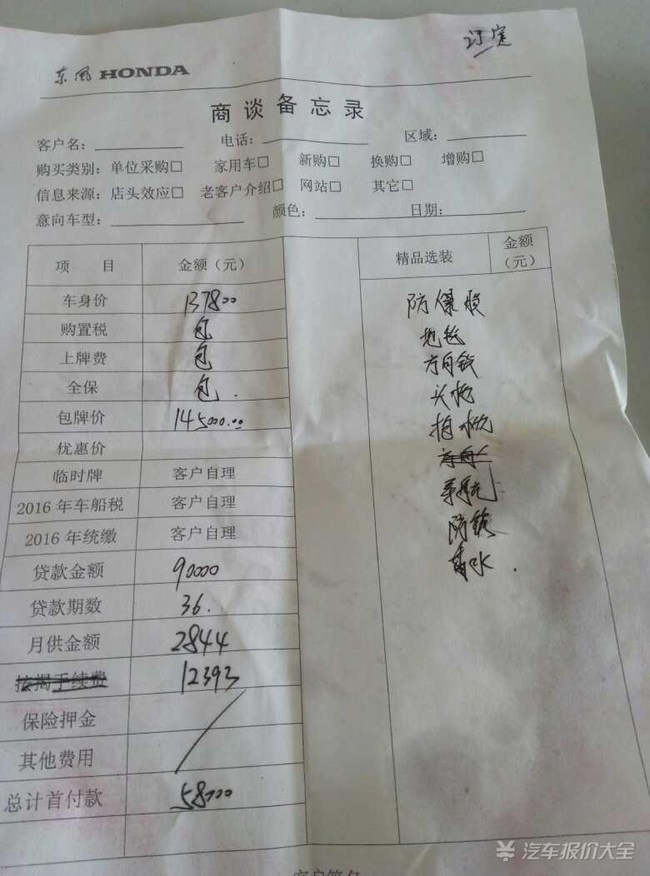 订定
东风 HONDA
商谈备忘录
客户名： 电话： 区域：
购买类别：单位采购□ 家用车□ 新购□ 换购□ 增购□
信息来源：店头效应□ 老客户介绍□ 网站□ 其它□
意向车型： 颜色： 日期：
项 目 金额（元） 精品选装 金额（元）
车身价 137800 防爆膜
购置税 包 地毯
上牌费 包 方向
全保 包. 头枕
包牌价 145000.00
优惠价
临时牌 客户自理
2016 年车船税 客户自理 防锈
2016 年统缴 客户自理 香水.
贷款金额 90000
贷款期数 36.
月供金额 2844
按揭手续费 12393
保险押金
其他费用
总计首付款 58000
客户签名
汽车报价大全